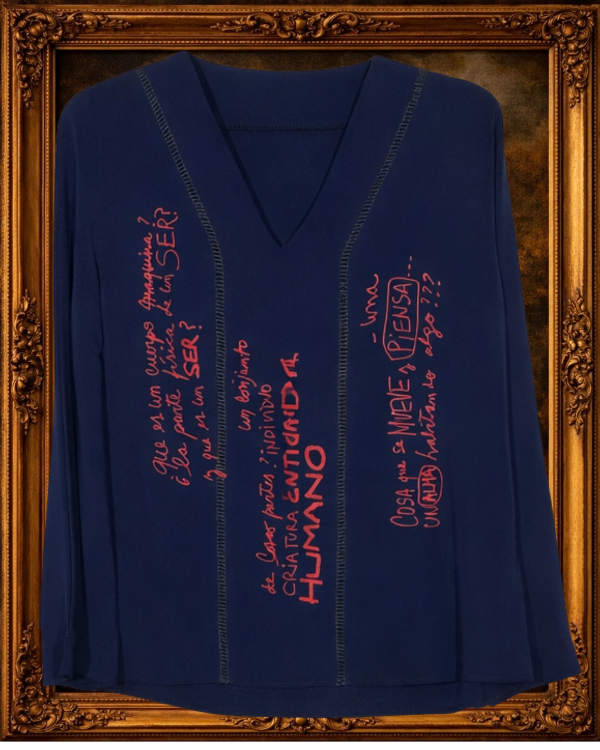 que es un cuerpo ¿maquina?
ó la parte física de un SER?
y que es un SER?
un conjunto
de COSAS partes? INDIVIDUO
CRIATURA ENTIDAD
HUMANO
una
COSA que se MUEVE y PIENSA...
UN ALMA habitando algo???